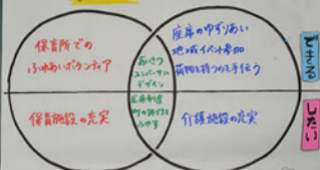 保育所での
ふれあいボランティア
保育施設の充実
あいさつ
ユニバーサル
デザイン
医療制度
座席のゆずりあい
地域イベント参加
荷物を持つのを手伝う
介護施設の充実
できる
したい